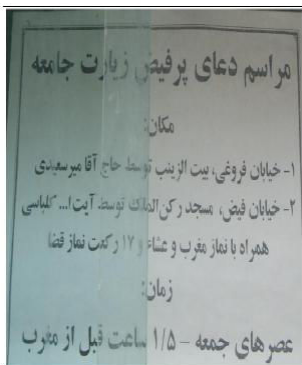 مراسم دعای پرفیض زیارت جامعه
مکان:
۱- خیابان فروغی، بیت الزینب توسط حاج آقا میرسعیدی
۲- خیابان فیض، مسجد رکن‌الملک توسط آیت‌ا... کلباسی
همراه با نماز مغرب و عشاء و ۱۷ رکعت نماز قضا
زمان:
عصرهای جمعه - ۱/۵ ساعت قبل از مغرب